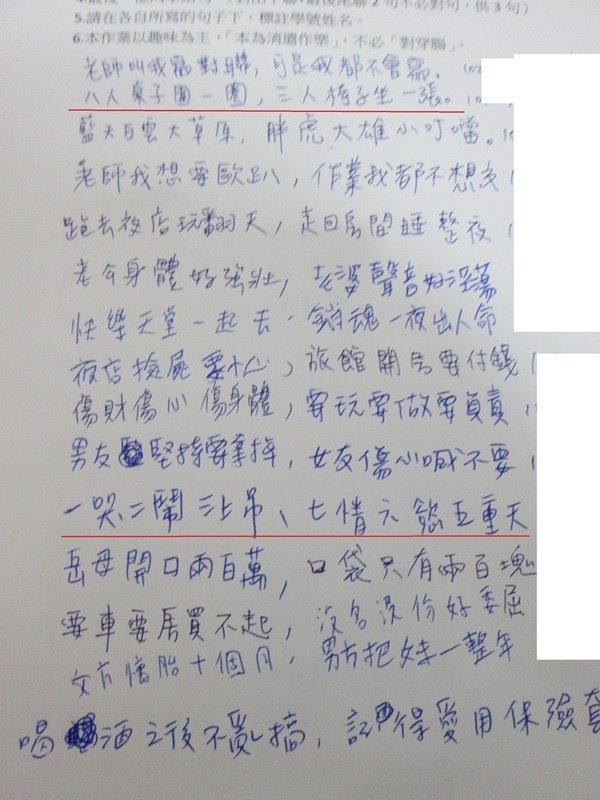 4.最後一位同學請寫（對出下聯+最後尾聯2句不必對句，供3句）
5.請在各自所寫的句子下，標註學號姓名。
6.本作業以趣味為主，「本為消遣作樂」，不必「對穿腸」。
老師叫我寫對聯，可是我都不會寫。
八人桌子圍一圈，三人椅子坐一張。
藍天白雲大草原，胖虎大雄小叮噹。
老師我想要歐趴，作業我都不想交
跑去夜店玩翻天，走回房間睡整夜
老公身體好強壯，老婆聲音好淫蕩
快樂天堂一起去，銷魂一夜出人命
夜店撿屍要小心，旅館開房要付錢
傷財傷心傷身體，要玩要做要負責
男友堅持要拿掉，女友傷心喊不要
一哭二鬧三上吊、七情六慾五重天
岳母開口兩百萬，口袋只有兩百塊
要車要房買不起，沒名沒份好委屈
女友懷胎十個月，男友把妹一整年
喝酒之後不亂搞，記得愛用保險套